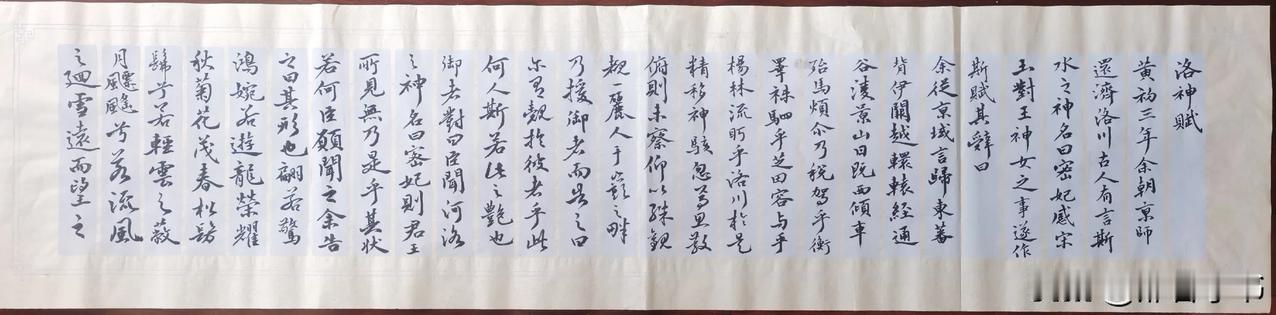 洛神賦
黄初三年余朝京師
還濟洛川古人有言斯
水之神名曰宓妃感宋
玉對王神女之事遂作
斯賦其辭曰
余從京域言歸東藩
背伊闕越轘轅経通
谷陵景山日既西傾車
殆馬煩尒乃税駕乎衡
睾秣駟乎芝田容与乎
楊林流眄乎洛川於是
精移神駭忽焉思散
俯則未察仰以殊觀
覩一麗人于巖之畔
乃援御者而告之曰
尓有覿於彼者乎此
何人斯若此之艷也
御者對曰臣聞河洛
之神名曰宓妃則君王
所見無乃是乎其状
若何臣願聞之余告
之曰其形也翩若驚
鴻婉若遊龍榮耀
秋菊華茂春松髣
髴兮若輕雲之蔽
月飄颻兮若流風
之廻雪遠而望之